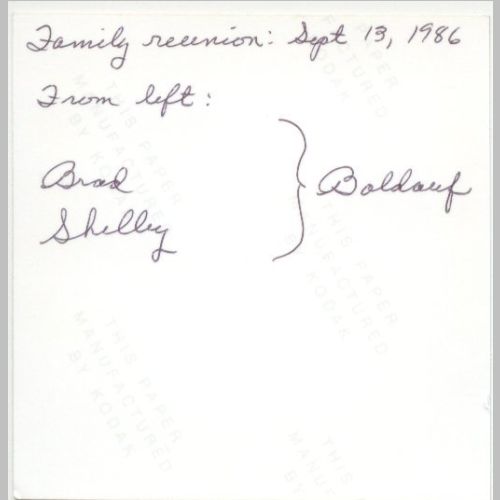 Family reunion: Sept 13, 1986
From left:
Brad
Shelley
} Boldauf
THIS PAPER
MANUFACTURED
BY KODAK
THIS PAPER
MANUFACTURED
BY KODAK
THIS PAPER
MANUFACTURED
BY KODAK
THIS PAPER
MANUFACTURED